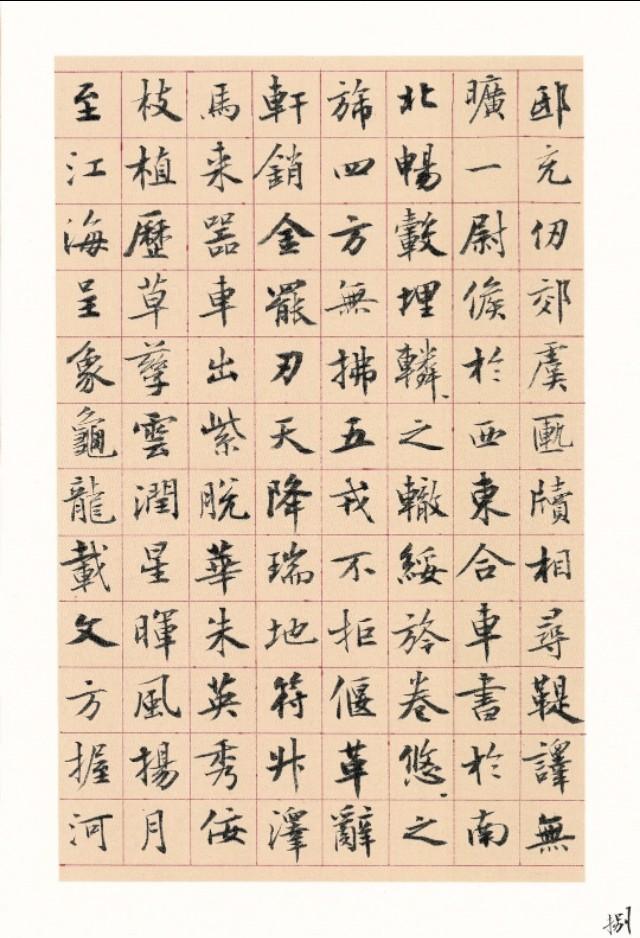 邸充仞郊虞匭牘相尋鞮譯無
曠一尉候於西東合車書於南
北暢轂埋轔、之轍綏旍卷悠、之
旆四方無拂五戎不拒偃革辭
軒銷金罷刃天降瑞地符升澤
馬来器車出紫脫華朱英秀佞
枝植歷草孳雲潤星暉風揚月
至江海呈象龜龍載文方握河
捌